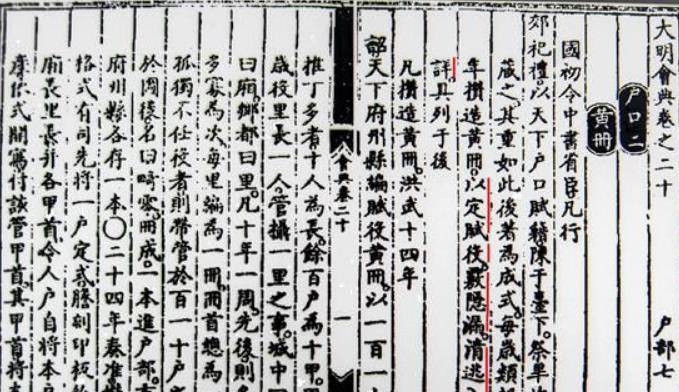 大明會典卷之二十 戶部七
户口二
黃冊
國初令中書省臣凡行
郊祀禮以天下户口賦籍陳于臺下祭畢
藏之其重如此後著為成式每歲類
年攢造黃冊以定賦役覈隱漏清逃
詳具列于後
凡攢造黃冊洪武十四年
詔天下府州縣編賦役黃冊以一百一
會典卷二十 一
推丁多者十人為長餘百户為十甲
歲役里長一人管攝一里之事城中
曰廂鄉都曰里凡十年一周先後則
多寡為次每里編為一冊冊首總為
孤獨不任役者則帶管於百一十户
於圖後名曰畸零冊成一本進户部
府州縣各存一本○二十四年奏准
格式有司先將一户定式謄刻印板
廂長里長并各甲首令人户自將本
依式開寫付該管甲首其甲首將